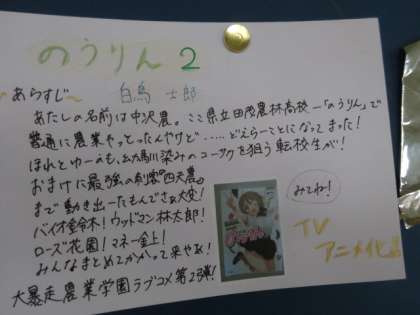 のうりん 2
あらすじ
白鳥 士郎
あたしの名前は中沢農。ここ県立田茂農林高校―「のうりん」で
普通に農業やっとったんやけど……どえらーことになってまった!
ほれとゆーんも、幼馴染みのコーサクを狙う転校生が!
おまけに最強の刺客"四天農"
まで動き出ーたもんでさぁ大変!
バイオ鈴木!ウッドマン林太郎!
ローズ花園!マネー金上!
みんなまとめてかかって来やぁ!
大暴走農業学園ラブコメ第2弾!
みてね!
TV
アニメ化